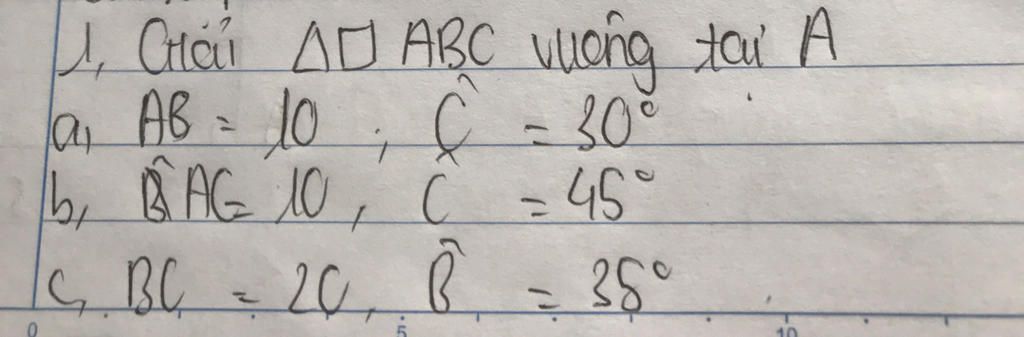 1, Giải Δ□ ABC vuông tại A
a, AB = 10 ; Ĉ = 30°
b, AC = 10, Ĉ = 45°
c, BC = 20, B̂ = 35°
0 5 10